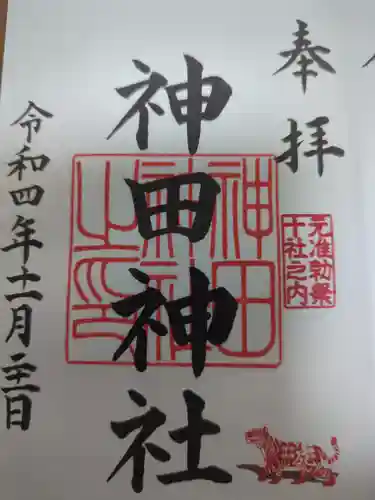 奉拝
元准勅祭
十社之内
神田神社
神田神社之印
令和四年十一月二十三日